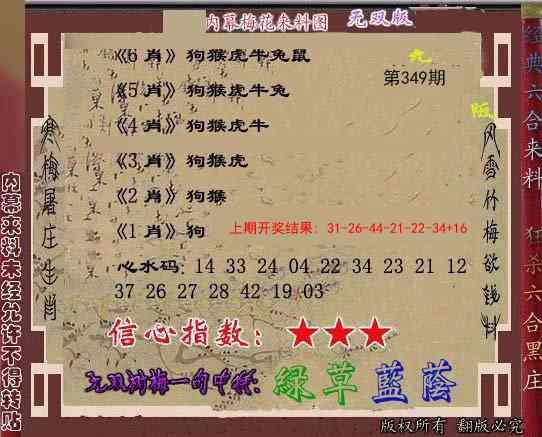 内幕梅花来料图 无双版
《6 肖》狗猴虎牛兔鼠
九
第349期
《5 肖》狗猴虎牛兔
阪
《4 肖》狗猴虎牛
《3 肖》狗猴虎
《2 肖》狗猴
《1 肖》狗
上期开奖结果：31-26-44-21-22-34+16
心水码：14 33 24 04 22 34 23 21 12
37 26 27 28 42 19 03
信心指数：★★★
无双鸿梅一句中特：綠草藍蔭
版权所有 翻版必究
寒梅屠庄生肖
风雪竹梅欲钱料
内幕来料未经允许不得转贴
经典六合来料 狂杀六合黑庄